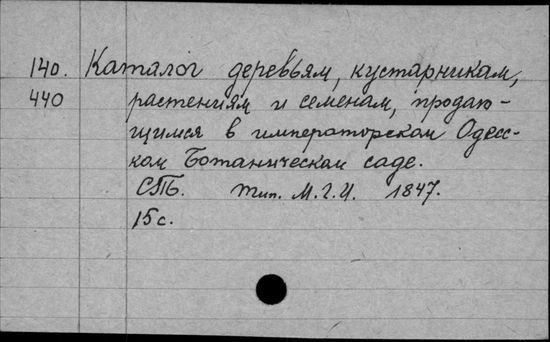 140. Каталог деревьям, кустарникам,
440 растениям и семенам, продаю-
щимся в императорском Одесс-
ком Ботаническом саде.
СПБ. тип. М.Г.И. 1847.
15 с.